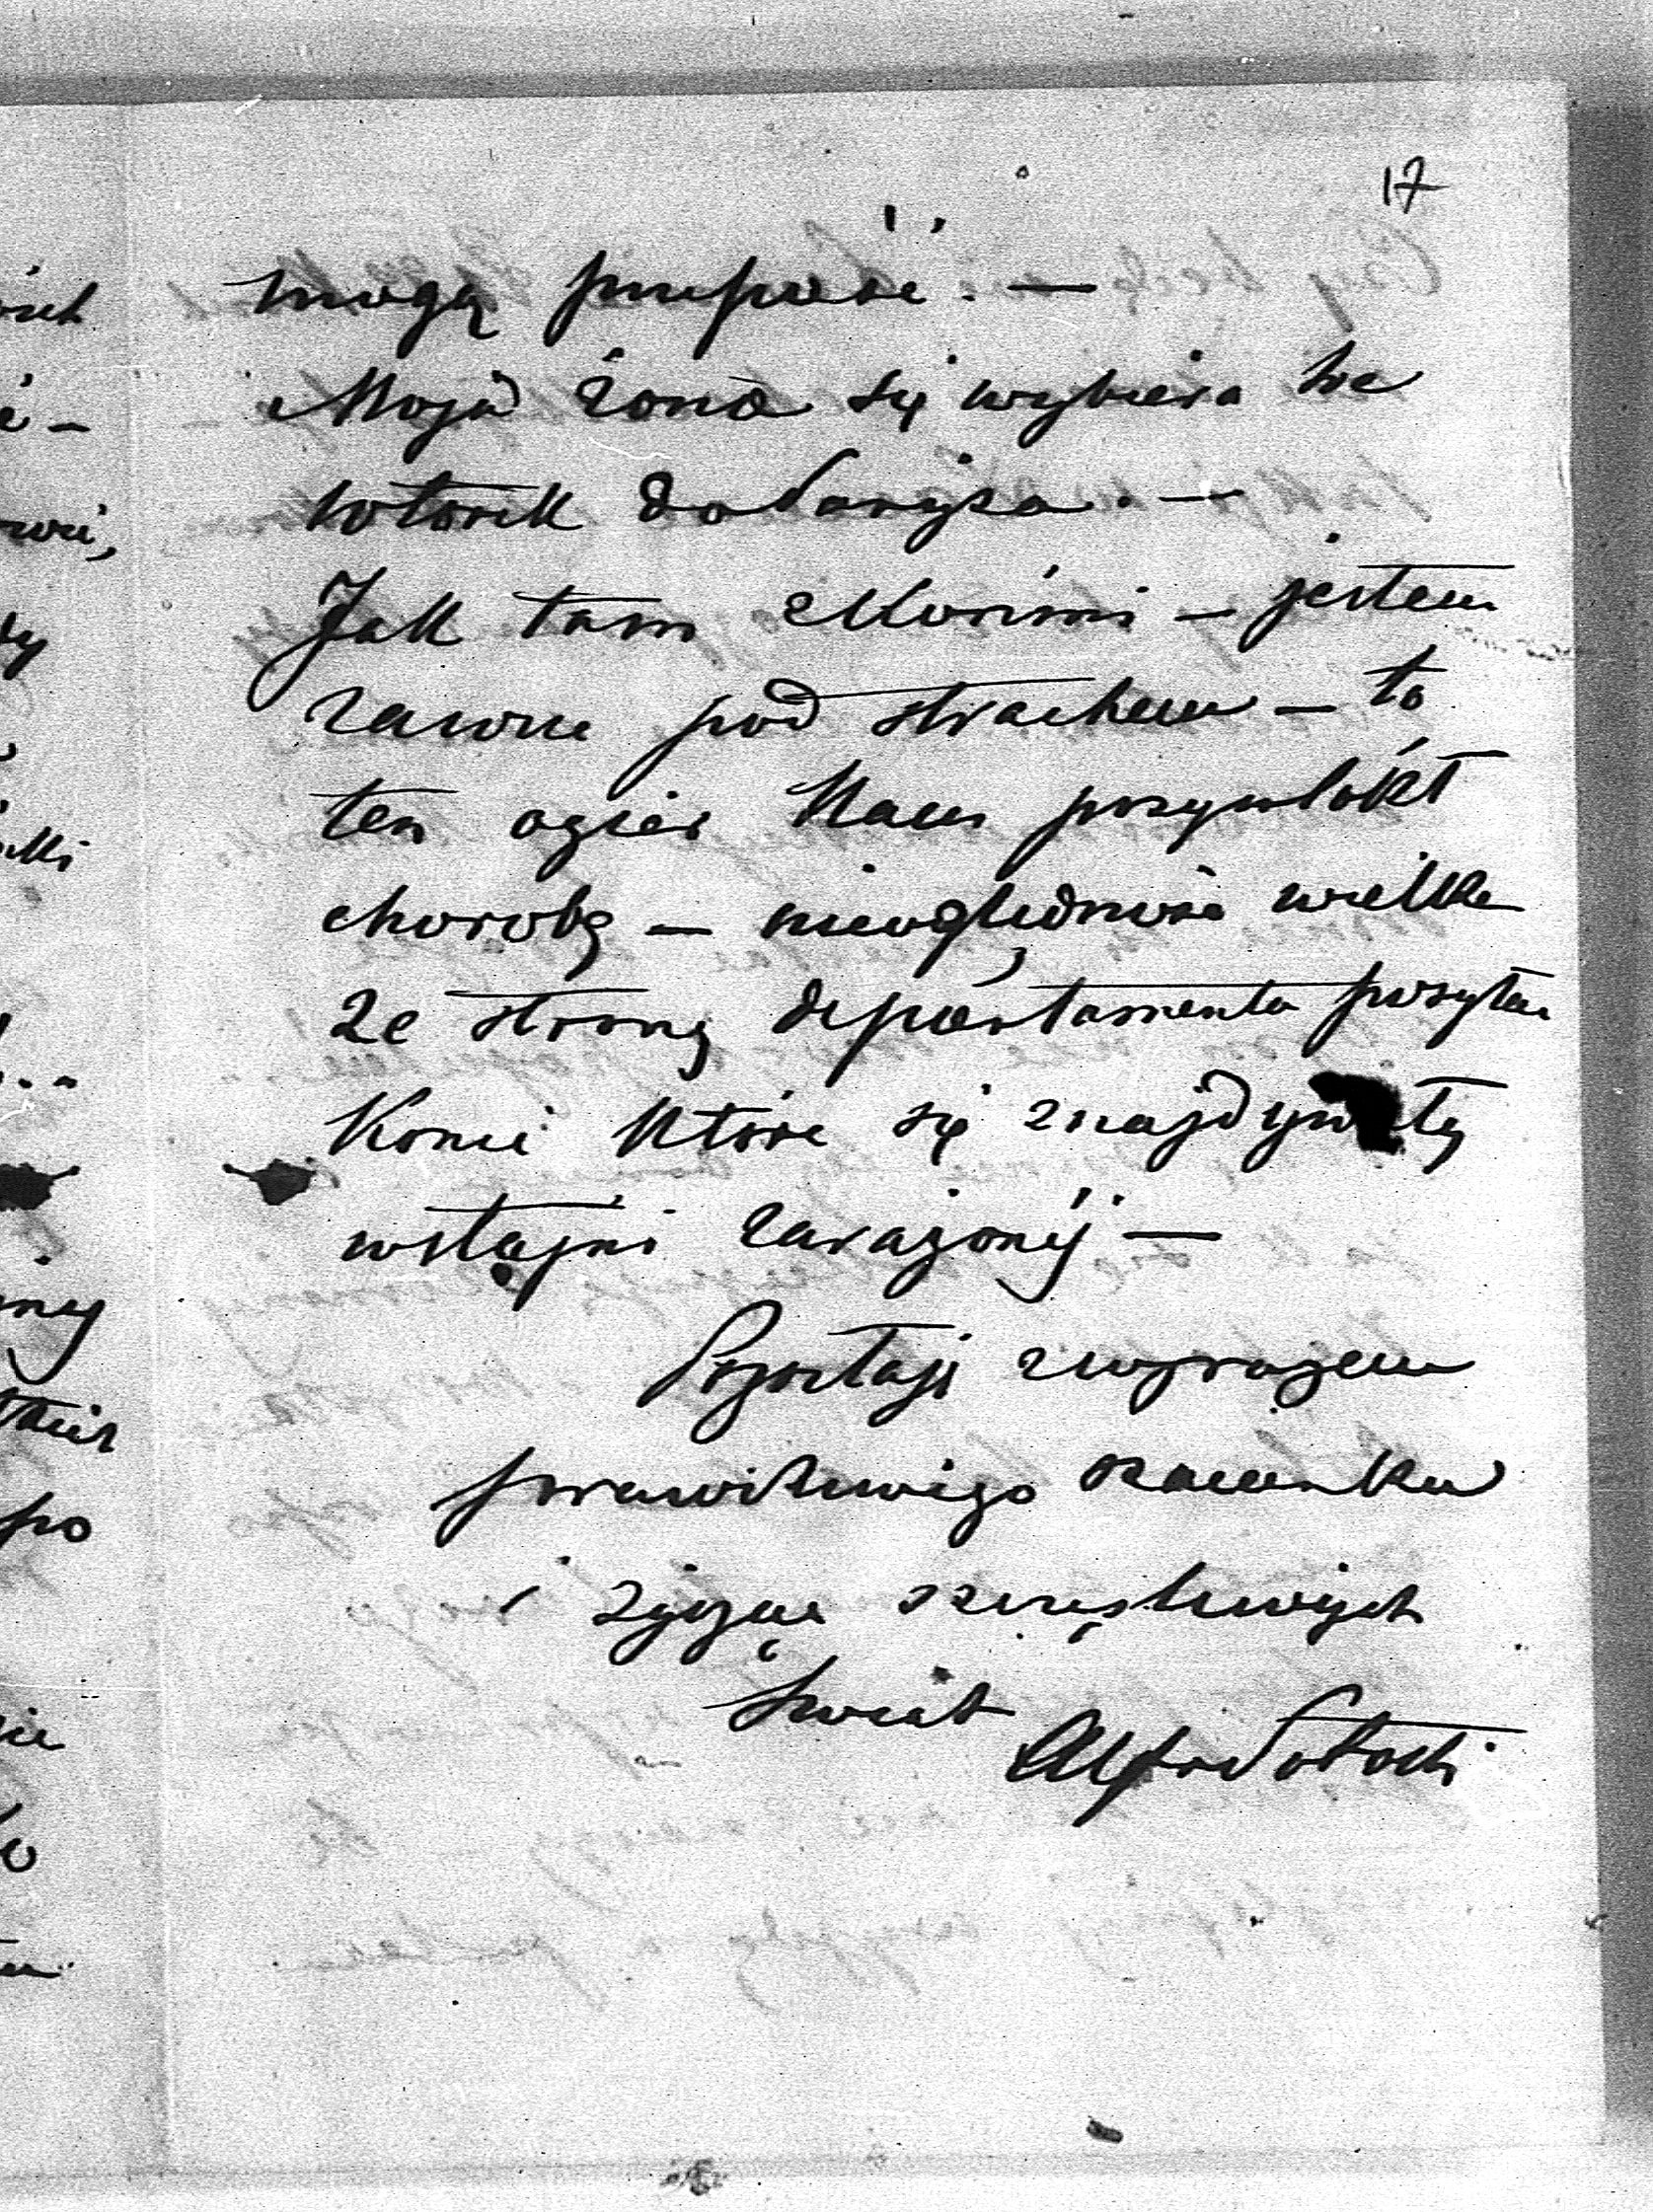 17
mogą przepaść. —
Moja żona się wybiera we
wtorek do Paryża. —
Jak tam z Końmi — jestem
zawsze pod strachem — to
ten ogier Nam przywlókł
chorobę — nieoględność wielka
ze strony departamentu posyłać
Konie które się znajdywały
w stajni zarażonej —
Pozostaję z wyrazem
prawdziwego szacunku
i życzę szczęśliwych
Świąt
Alfred Potocki